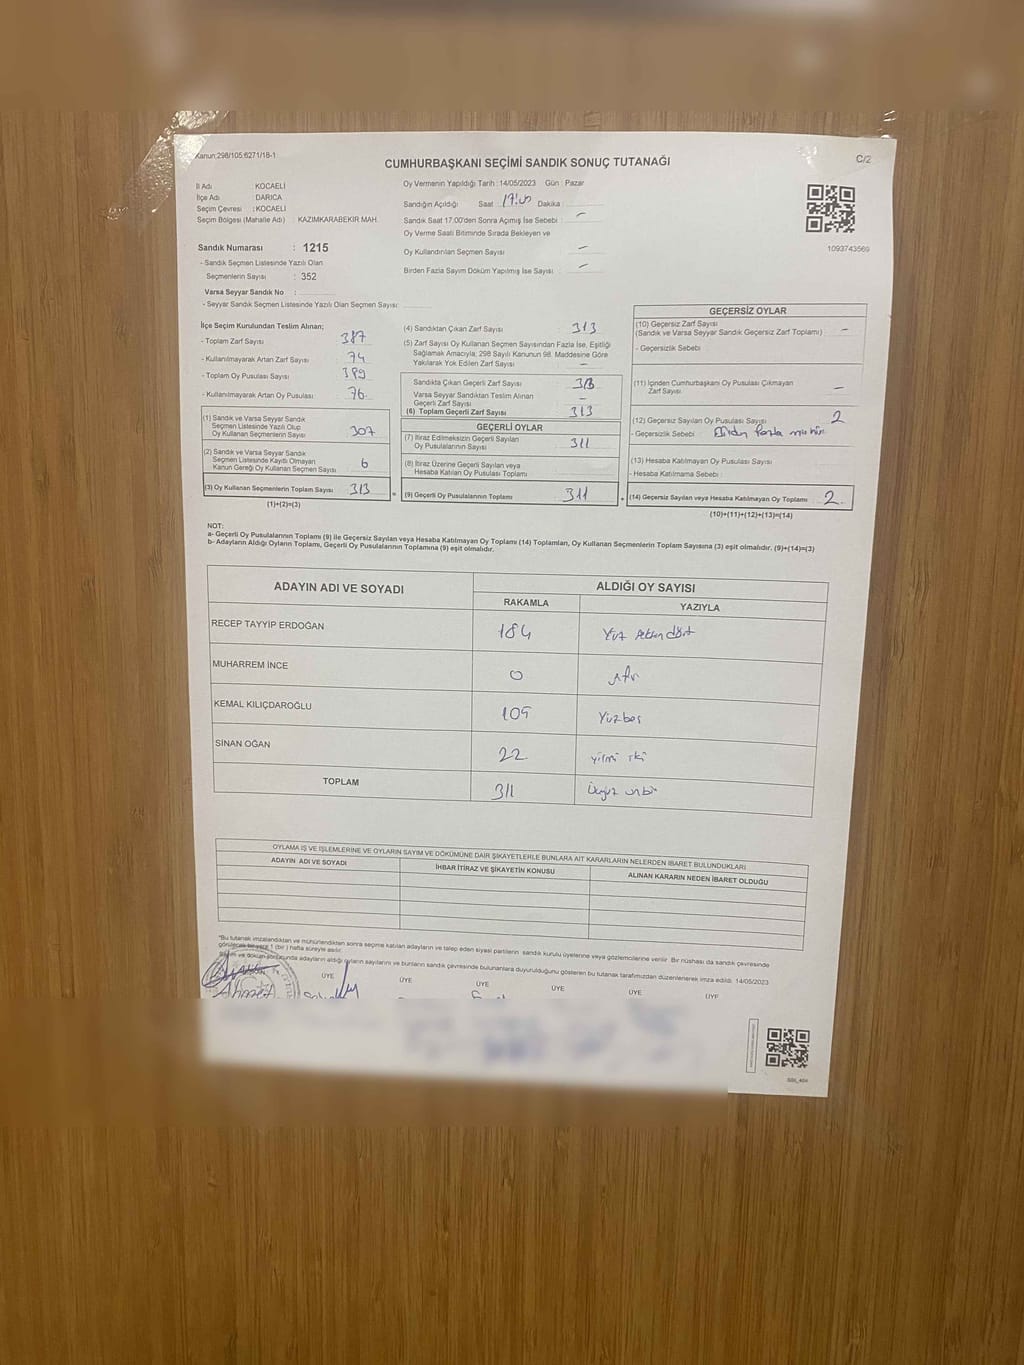 Kanun:298/105:6271/18-1
CUMHURBAŞKANI SEÇİMİ SANDIK SONUÇ TUTANAĞI
C/2
İl Adı KOCAELİ
İlçe Adı DARICA
Seçim Çevresi : KOCAELİ
Seçim Bölgesi (Mahalle Adı) : KAZIMKARABEKIR MAH.
Sandık Numarası : 1215
- Sandık Seçmen Listesinde Yazılı Olan
Seçmenlerin Sayısı : 352
Varsa Seyyar Sandık No :
- Seyyar Sandık Seçmen Listesinde Yazılı Olan Seçmen Sayısı:
Oy Vermenin Yapıldığı Tarih : 14/05/2023 Gün : Pazar
Sandığın Açıldığı Saat Dakika :
Sandık Saat 17.00'den Sonra Açılmış İse Sebebi : -
Oy Verme Saati Bitiminde Sırada Bekleyen ve
Oy Kullandırılan Seçmen Sayısı -
Birden Fazla Sayım Döküm Yapılmış İse Sayısı : -
1093743569
İlçe Seçim Kurulundan Teslim Alınan;
- Toplam Zarf Sayısı 387
- Kullanılmayarak Artan Zarf Sayısı 74
- Toplam Oy Pusulası Sayısı 389
- Kullanılmayarak Artan Oy Pusulası 76
(1) Sandık ve Varsa Seyyar Sandık
Seçmen Listesinde Yazılı Olup
Oy Kullanan Seçmenlerin Sayısı 307
(2) Sandık ve Varsa Seyyar Sandık
Seçmen Listesinde Kaydı Olmayan
Kanun Gereği Oy Kullanan Seçmen Sayısı 6
(3) Oy Kullanan Seçmenlerin Toplam Sayısı 313
(1)+(2)=(3)
(4) Sandıktan Çıkan Zarf Sayısı : 313
(5) Zarf Sayısı Oy Kullanan Seçmen Sayısından Fazla İse, Eşitliği
Sağlamak Amacıyla; 298 Sayılı Kanunun 98. Maddesine Göre
Yakılarak Yok Edilen Zarf Sayısı : -
Sandıkta Çıkan Geçerli Zarf Sayısı : 313
Varsa Seyyar Sandıktan Teslim Alınan
Geçerli Zarf Sayısı : -
(6) Toplam Geçerli Zarf Sayısı : 313
GEÇERLİ OYLAR
(7) İtiraz Edilmeksizin Geçerli Sayılan
Oy Pusulalarının Sayısı : 311
(8) İtiraz Üzerine Geçerli Sayılan veya
Hesaba Katılan Oy Pusulası Toplamı
= (9) Geçerli Oy Pusulalarının Toplamı 311
GEÇERSİZ OYLAR
(10) Geçersiz Zarf Sayısı
(Sandık ve Varsa Seyyar Sandık Geçersiz Zarf Toplamı) : -
- Geçersizlik Sebebi
(11) İçinden Cumhurbaşkanı Oy Pusulası Çıkmayan
Zarf Sayısı : -
(12) Geçersiz Sayılan Oy Pusulası Sayısı : 2
- Geçersizlik Sebebi : Birden fazla mühür
(13) Hesaba Katılmayan Oy Pusulası Sayısı
- Hesaba Katılmama Sebebi
+ (14) Geçersiz Sayılan veya Hesaba Katılmayan Oy Toplamı 2
(10)+(11)+(12)+(13)=(14)
NOT:
a- Geçerli Oy Pusulalarının Toplamı (9) ile Geçersiz Sayılan veya Hesaba Katılmayan Oy Toplamı (14) Toplamları, Oy Kullanan Seçmenlerin Toplam Sayısına (3) eşit olmalıdır. (9)+(14)=(3)
b- Adayların Aldığı Oyların Toplamı, Geçerli Oy Pusulalarının Toplamına (9) eşit olmalıdır.
ADAYIN ADI VE SOYADI
ALDIĞI OY SAYISI
RAKAMLA YAZIYLA
RECEP TAYYİP ERDOĞAN 184 Yüz seksen dört
MUHARREM İNCE 0 sıfır
KEMAL KILIÇDAROĞLU 105 Yüzbeş
SİNAN OĞAN 22 yirmi iki
TOPLAM 311 Üçyüz onbir
OYLAMA İŞ VE İŞLEMLERİNE VE OYLARIN SAYIM VE DÖKÜMÜNE DAİR ŞİKAYETLERLE BUNLARA AİT KARARLARIN NELERDEN İBARET BULUNDUKLARI
ADAYIN ADI VE SOYADI İHBAR İTİRAZ VE ŞİKAYETİN KONUSU ALINAN KARARIN NEDEN İBARET OLDUĞU
*Bu tutanak imzalandıktan ve mühürlendikten sonra seçime katılan adayların ve talep eden siyasi partilerin sandık kurulu üyelerine veya gözlemcilerine verilir. Bir nüshası da sandık çevresinde
görülecek bir yere 1 (bir) hafta süreyle asılır.
Sayım ve döküm sonucunda adayların aldığı oyların sayılarını ve bunların sandık çevresinde bulunanlara duyurulduğunu gösteren bu tutanak tarafımızdan düzenlenerek imza edildi. 14/05/2023
ÜYE ÜYE ÜYE ÜYE ÜYE ÜYE
Ahmet